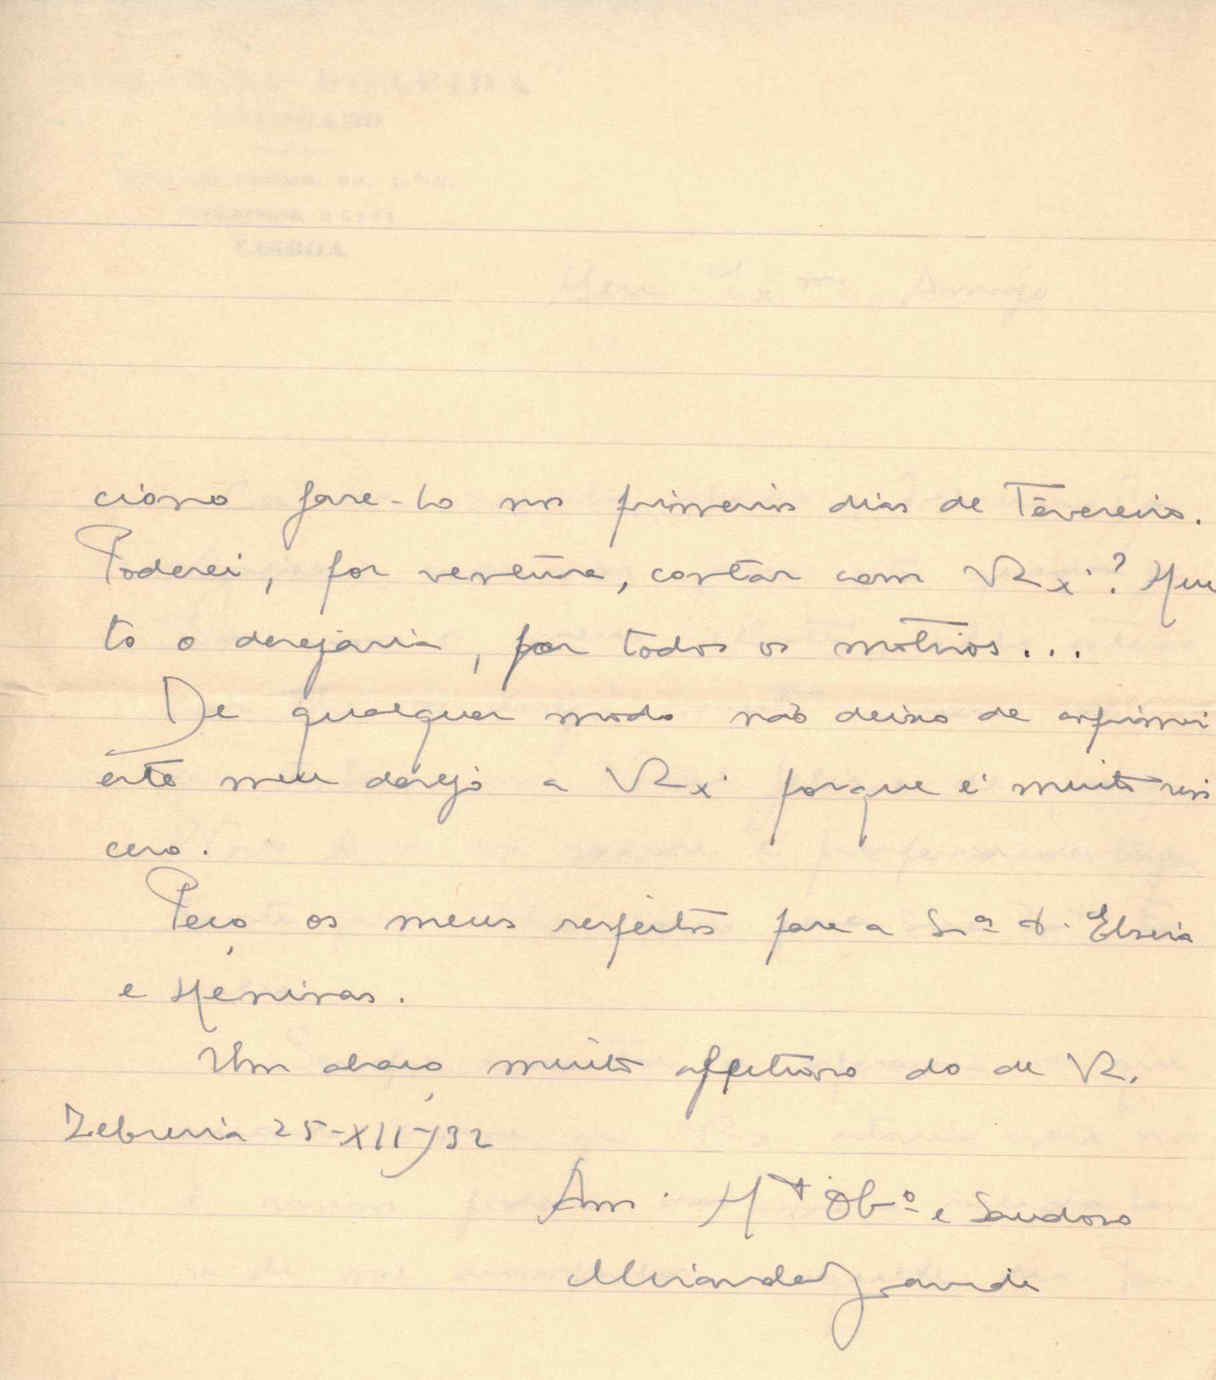 ciono faze-lo nos primeiros dias de Fevereiro.
Poderei, por ventura, contar com V. Ex.ª? Mui
to o desejaria, por todos os motivos...
De qualquer modo não deixo de exprimir
este meu desejo a V. Ex.ª porque é muito sin
cero.
Peço os meus respeitos para a Sr.ª D. Elzira
e Meninas.
Um abraço muito affetuoso do de V.
Zebreira 25-XII-932
Am. M.to Obº e Saudoso
LISBOA
Meu Ex.mo Amigo